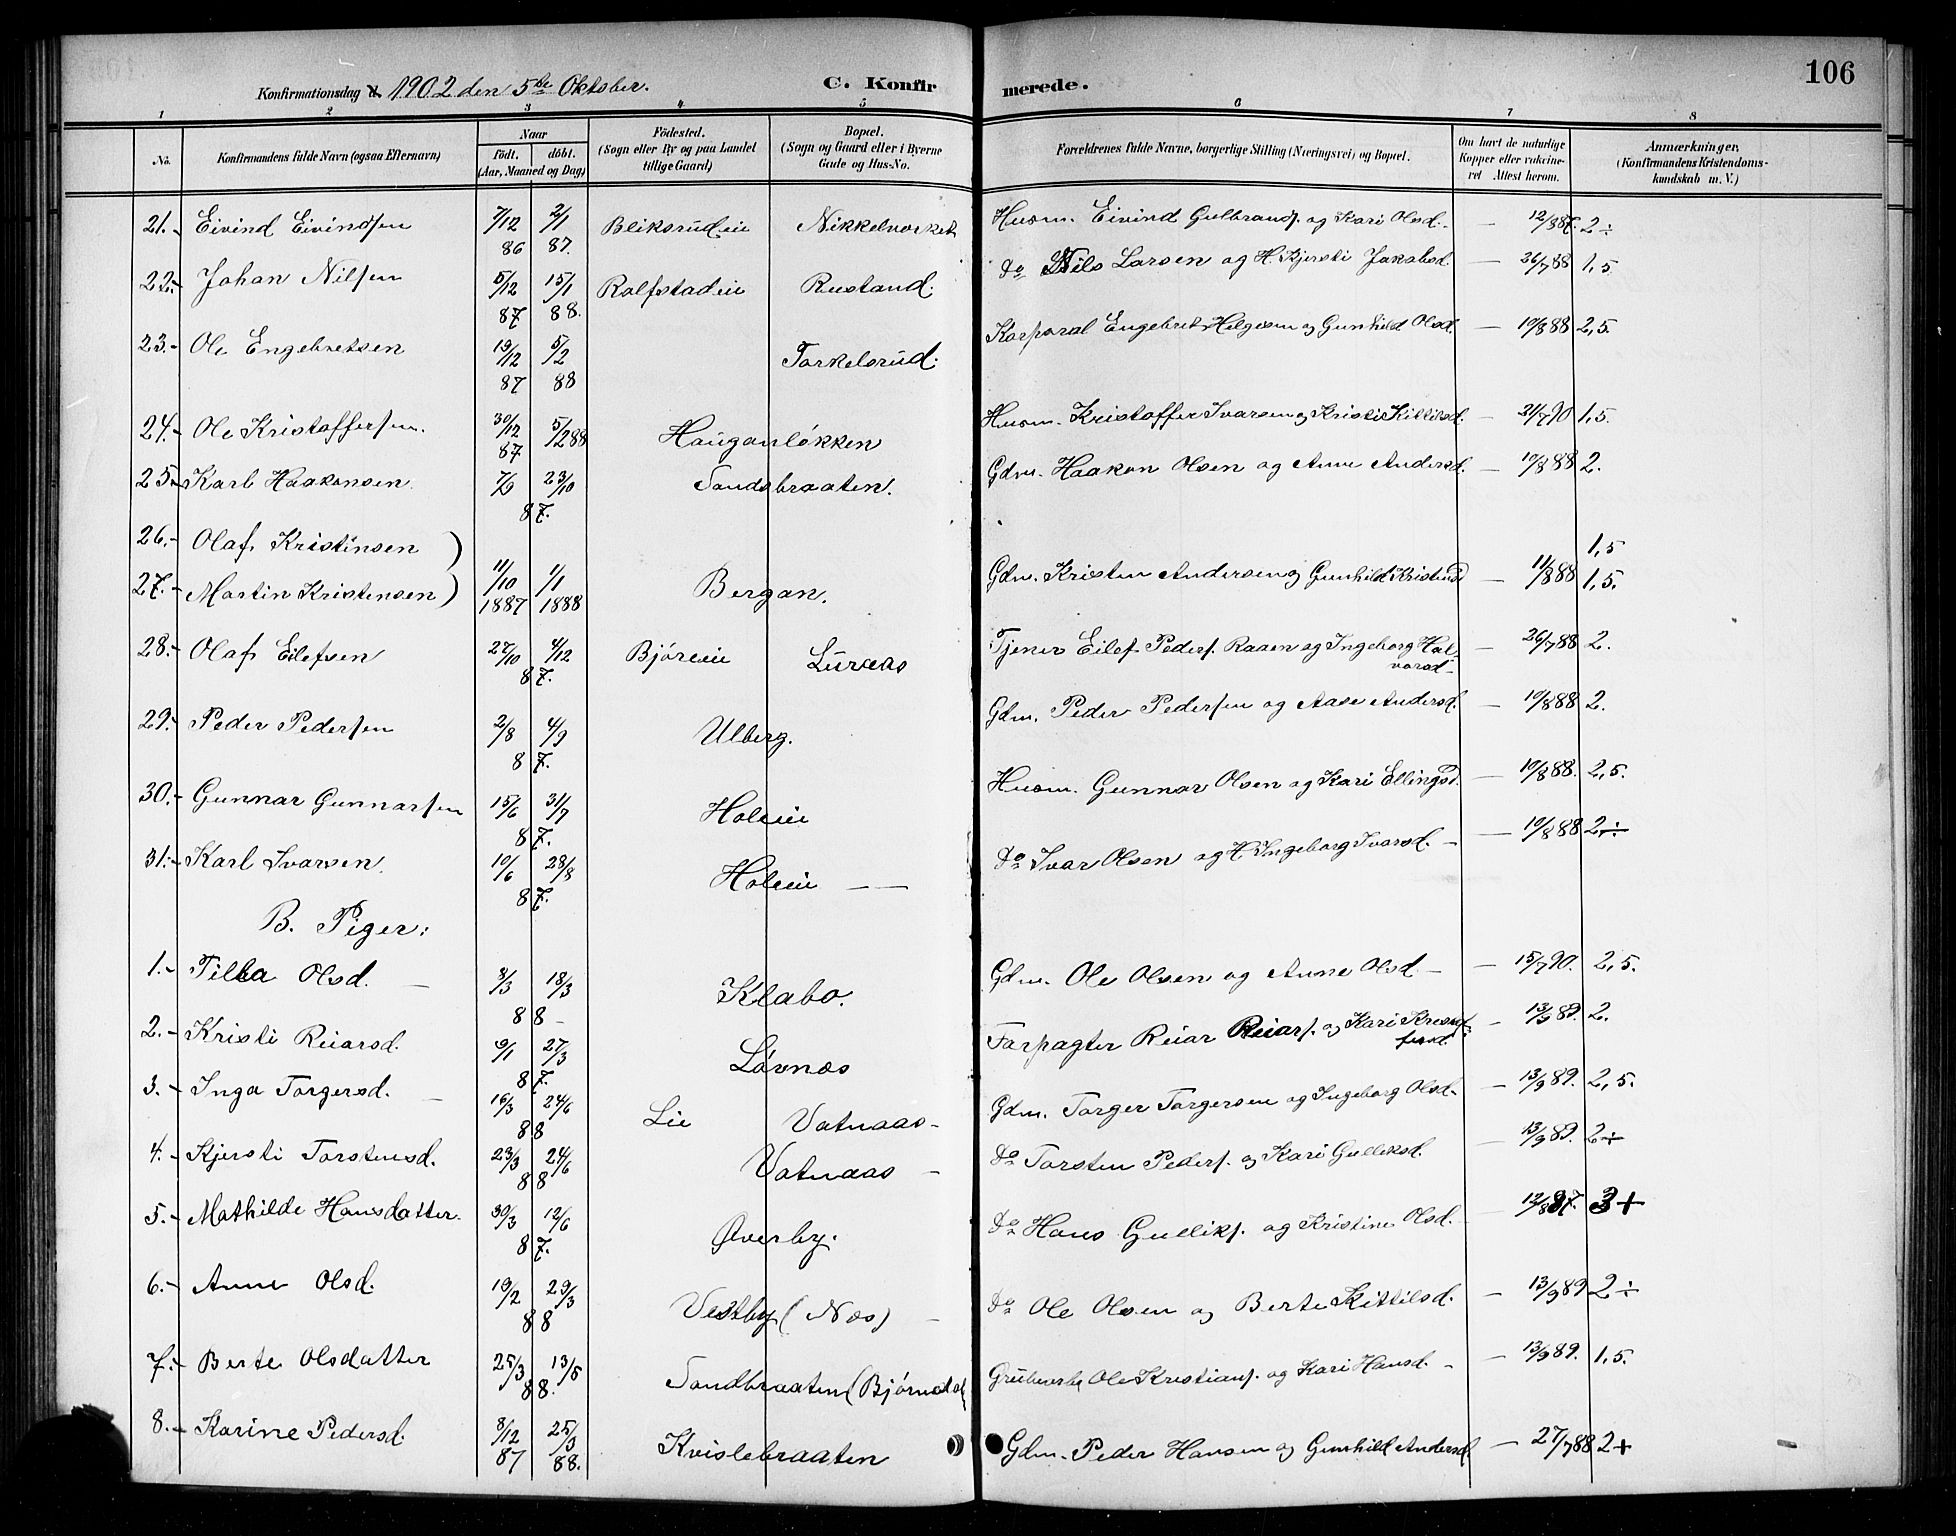 106
Konfirmationsdag d. 1902 den 5te Oktober. C. Konfir merede.
1 2 3 4 5 6 7 8
No. Konfirmandens fulde Navn (ogsaa Efternavn) Naar födt. döbt. (Aar, Maaned og Dag) Födested. (Sogn eller By og paa Landet tillige Gaard) Bopæl. (Sogn og Gaard eller i Byerne Gade og Hus-No. Forældrenes fulde Navne, borgerlige Stilling (Næringsvei) og Bopæl. Om havt de naturlige Kopper eller vakcineret Attest herom. Anmærkninger. (Konfirmandens Kristendomskundskab m. V.)
21.- Eivind Eivindsen 7/12 86 2/1 87. Bliksrudeie Nikkelverket Husm. Eivind Gulbrands. og Kari Olsd. - 12/887. 2 ÷
22.- Johan Nilsen 5/12 87 15/1 88. Rolfstadeie Rustand. do Nils Larsen og H. Kjersti Jakobsd. - 26/788 1,5.
23.- Ole Engebretsen 19/12 87 5/2 88 Torkelsrud. Korporal Engebret Helgesen og Gunhild Olsd. - 10/888 2,5.
24.- Ole Kristoffersen. 30/12 87 5/288 Hauganløkken Husm. Kristoffer Ivarsen og Kristi Kittilsd. - 21/790 1,5.
25.- Karl Haakonsen. 7/9 23/10 87. Sandsbraaten. Gdm. Haakon Olsen og Anne Andersd. - 10/888 2.
26.- Olaf Kristinsen ) 1,5
27.- Martin Kristensen ) 11/10 1887 1/1 1888 Bergan. Gdm. Kristen Andersen og Gunhild Kristensd - 11/888 1,5.
28.- Olaf Eilefsen 27/10 4/12 87. Bjøreeie Luraas Tjener Eilef Peders. Raaen og Ingeborg Halvorsd - 26/788 2.
29.- Peder Pedersen 2/8 4/9 87. Ulberg. Gdm. Peder Pedersen og Aase Andersd. - 10/888 2.
30.- Gunnar Gunnarsen 15/6 31/7 87. Holeeie Husm. Gunnar Olsen og Kari Ellingsd. - 10/888. 2,5.
31.- Karl Ivarsen. 10/6 28/8 87. Holeeie - - do Ivar Olsen og H. Ingeborg Ivarsd. - 10/888 2 ÷
B. Piger:
1.- Tilla Olsd. - 3/3 18/3 88 - Klabo. Gdm. Ole Olsen og Anne Olsd - - 15/790. 2,5.
2.- Kristi Reiarsd. 9/1 27/3 87. Løvnæs Forpagter Reiar Reiars. og Kari Kristoffersd. - 13/989. 2.
3.- Inga Torgersd. - 16/3 24/6 88 Lie Vatnaas - Gdm. Torger Torgersen og Ingeborg Olsd - - 13/989. 2,5.
4.- Kjersti Torstensd. 23/3 24/6 88 Vatnaas - do Torsten Peders. og Kari Gulliksd. - 13/989. 2 ÷
5.- Mathilde Hansdatter. 30/3 12/6 87. Øverby. do Hans Gulliks. og Kristine Olsd. - 12/887. 3+
6.- Anne Olsd. 19/2 29/3 88 Vestby (Næs) - do Ole Olsen og Berte Kittilsd. - 13/989 2 ÷
7.- Berte Olsdatter 25/3 13/5 88. Sandbraaten (Bjørndal) Grubearb. Ole Kristians. og Kari Hansd. - - 13/989. 1,5.
8.- Karine Pedersd. 8/12 87 25/3 88. Kvislebraaten Gdm. Peder Hansen og Gunhild Andersd. - 27/788 2+